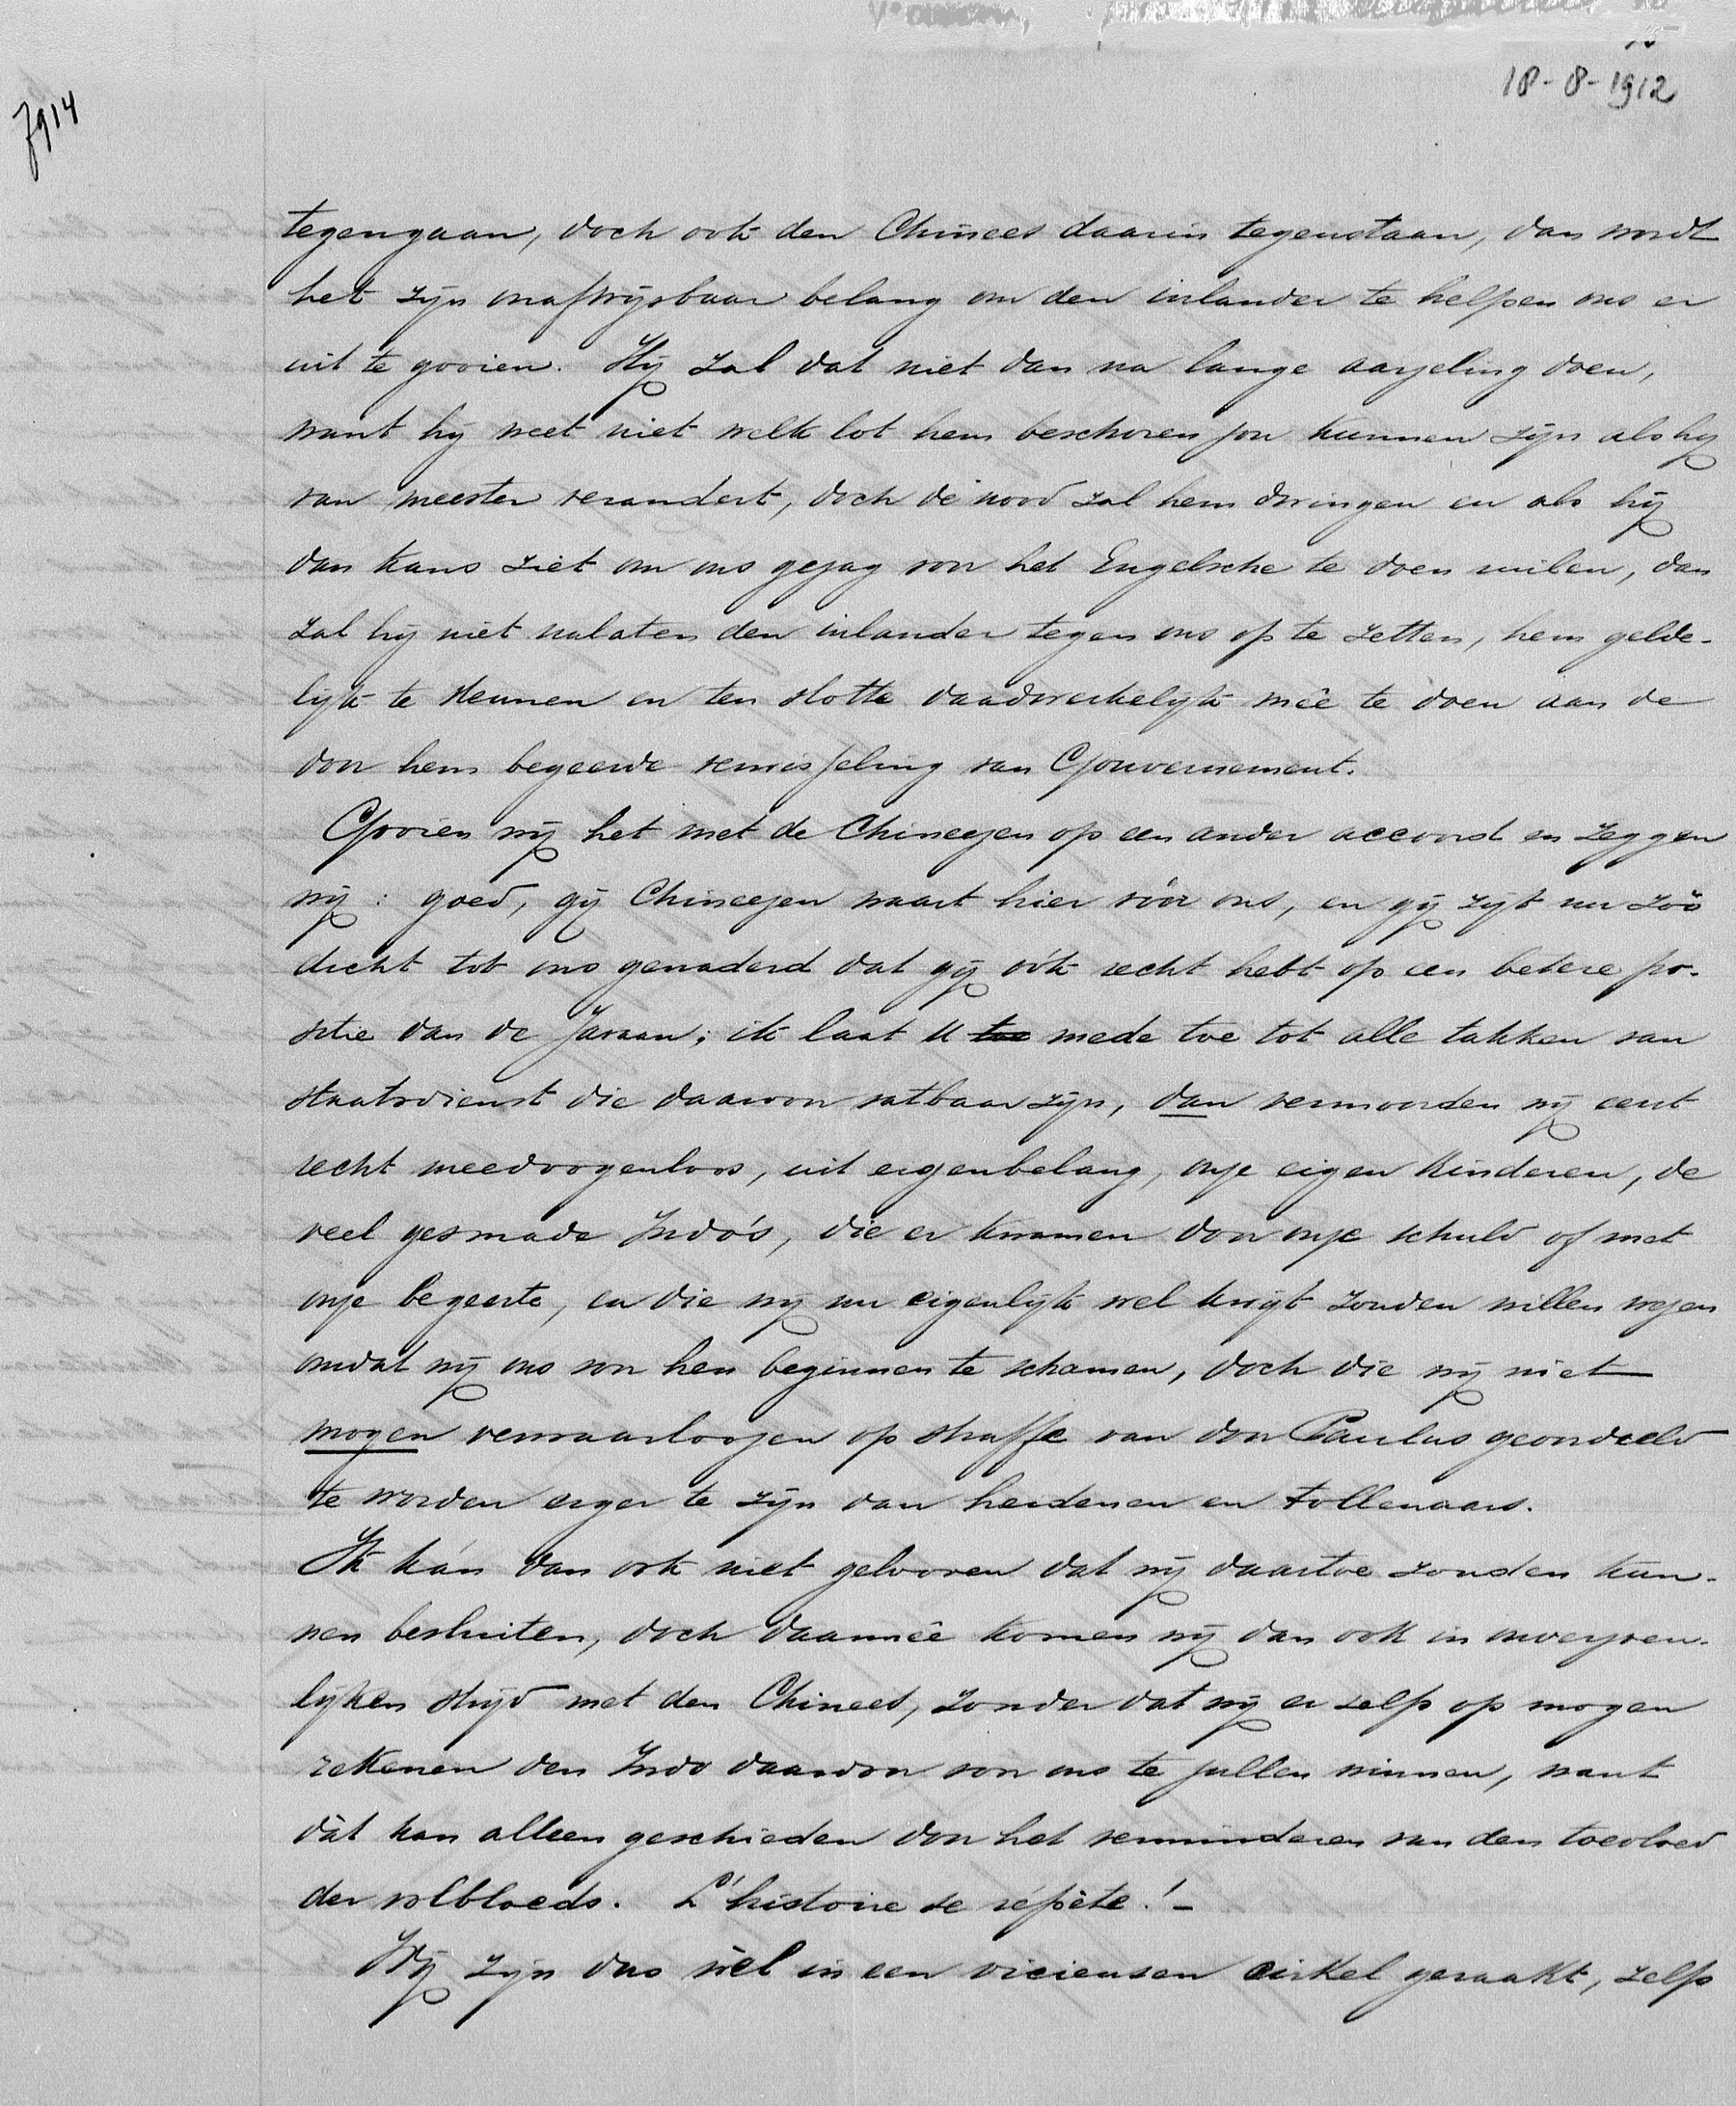 18-8-1912
7914
tegengaan, doch ook den Chinees daarin tegenstaan, dan wordt
het zijn onafwijsbaar belang om den inlander te helpen ons er
uit te gooien. Hij zal dat niet dan na lange aarzeling doen,
want hij weet niet welk lot hem beschoren zou kunnen zijn als hij
van meester verandert, doch de nood zal hem dwingen en als hij
dan kans ziet om ons gezag voor het Engelsche te doen ruilen, dan
zal hij niet nalaten den inlander tegen ons op te zetten, hem gelde-
lijk te steunen en ten slotte daadwerkelijk meê te doen aan de
door hem begeerde verwisseling van Gouvernement.
Gooien wij het met de Chineezen op een ander accoord en zeggen
wij: goed, gij Chineezen waart hier vóór ons, en gij zijt nu zóó
dicht tot ons genaderd dat gij óók recht hebt op een betere po-
sitie dan de Javaan; ik laat U toe mede toe tot alle takken van
staatsdienst die daarvoor vatbaar zijn, dan vermoorden wij eerst
recht meedoogenloos, uit eigenbelang, onze eigen kinderen, de
veel gesmade Indo's, die er kwamen door onze schuld of met
onze begeerte, en die wij nu eigenlijk wel kwijt zouden willen wezen
omdat wij ons voor hen beginnen te schamen, doch die wij niet
mogen verwaarloozen op straffe van door Paulus geoordeeld
te worden erger te zijn dan heidenen en tollenaars.
Ik kán dan ook niet gelooven dat wij daartoe zouden kun-
nen besluiten, doch daarmêe komen wij dan ook in onverzoen-
lijken strijd met den Chinees, zonder dat wij er zelfs op mogen
rekenen den Indo daardoor voor ons te zullen winnen, want
dàt kan alleen geschieden door het verminderen van den toevloed
der volbloeds. L'histoire se répète! -
Wij zijn dus wèl in een vicieusen cirkel geraakt, zelfs